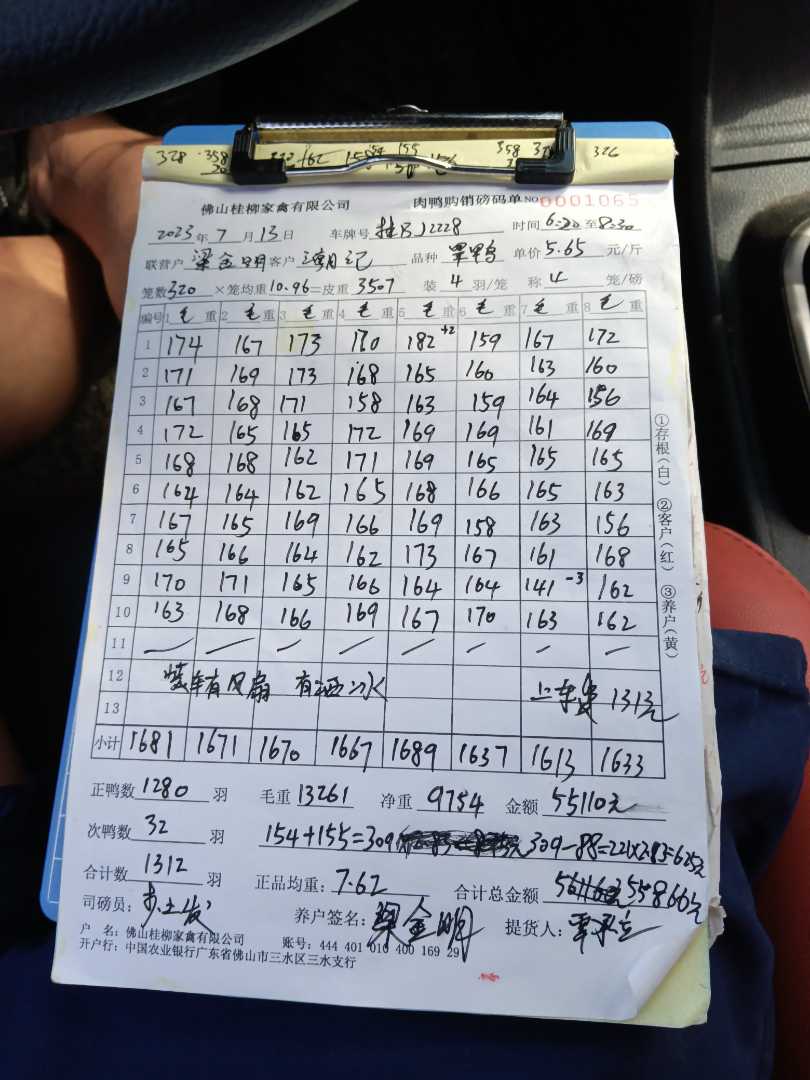 328 358 326
佛山桂柳家禽有限公司 肉鸭购销磅码单 NO 0001065
2023年7月13日 车牌号 桂BJ2228 时间6:20至8:30
联营户 梁金明 客户 潮记 品种 单价5.65元/斤
笼数320×笼均重10.96=皮重3507 装4羽/笼 称4笼/磅
编号 1毛重 2毛重 3毛重 4毛重 5毛重 6毛重 7毛重 8毛重
1 174 167 173 170 182+2 159 167 172
2 171 169 173 168 165 160 163 160
3 167 168 171 158 163 159 164 156
4 172 165 165 172 169 169 161 169
5 168 168 162 171 169 165 165 165
6 164 164 162 165 168 166 165 163
7 167 165 169 166 169 158 163 156
8 165 166 164 162 173 167 161 168
9 170 171 165 166 164 164 141-3 162
10 163 168 166 169 167 170 163 162
11 — — — — — — — —
12 装车有风扇 有洒水 上车费1313元
13
小计 1681 1671 1670 1667 1689 1637 1613 1633
①存根(白) ②客户(红) ③养户(黄)
正鸭数1280羽 毛重13261 净重9754 金额55110元
次鸭数32羽 154+155=309 309-88=221
合计数1312羽 正品均重:7.62 合计总金额 55866元
司磅员: 养户签名:梁金明 提货人:
户 名:佛山桂柳家禽有限公司 账号:444 401 010 400 169 29
开户行:中国农业银行广东省佛山市三水区三水支行